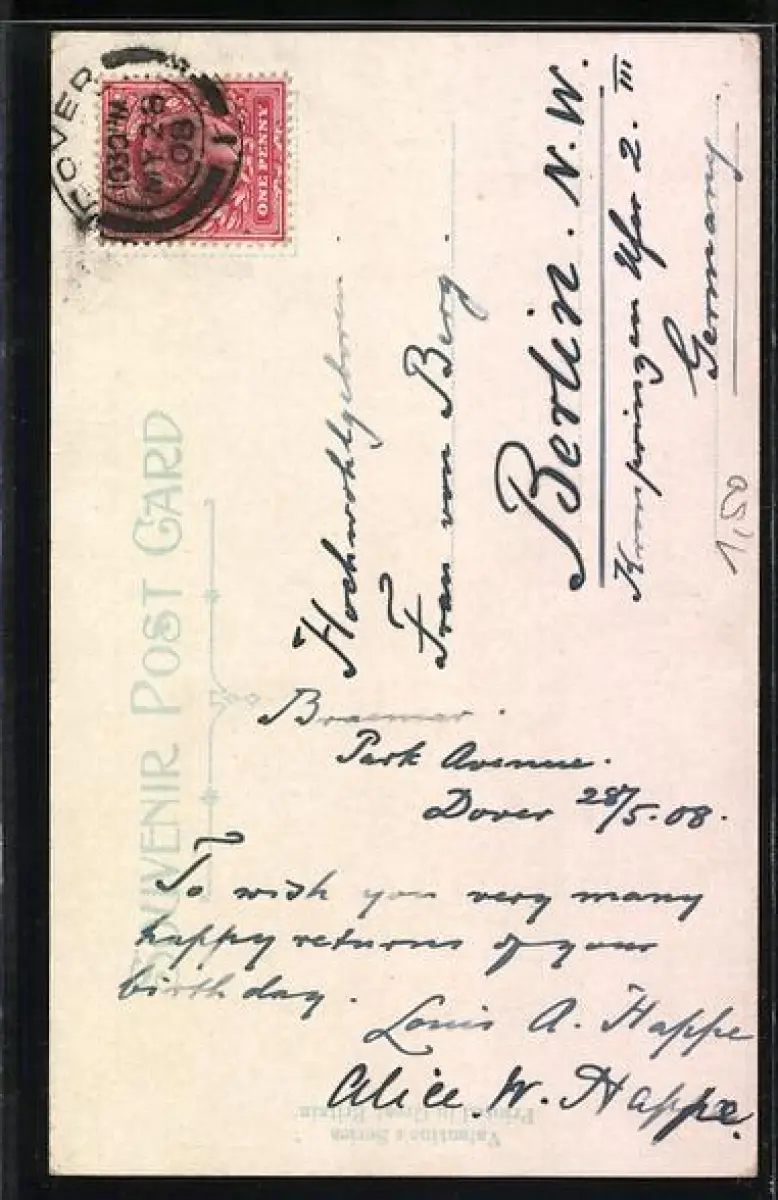 SOUVENIR POST CARD
DOVER
1030PM
MY 28
08
1
ONE PENNY
Hochwohlgeboren.
Frau von Berg.
Berlin. N.W.
Kronprinzen Ufer 2. III
Germany
1,50
Braemar.
Park Avenue.
Dover 28/5.08.
To wish you very many
happy returns of your
birthday.
Louis A. Happe
Alice. W. Happe.
Valentine's Series
Printed in Great Britain